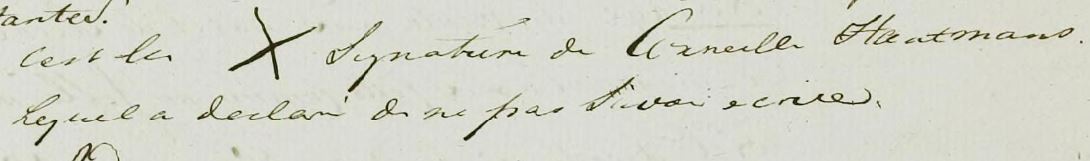 tantes.
c'est la X Signature de Corneille Hautmans.
Lequel a declaré de ne pas Savoir ecrire.